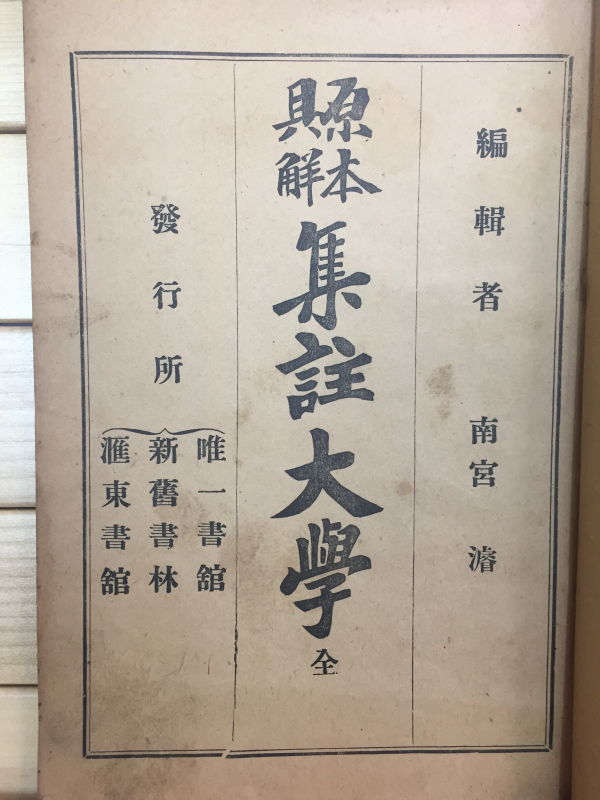 編輯者 南宮濬
原本
具解
集註大學全
發行所
唯一書舘
新舊書林
滙東書舘